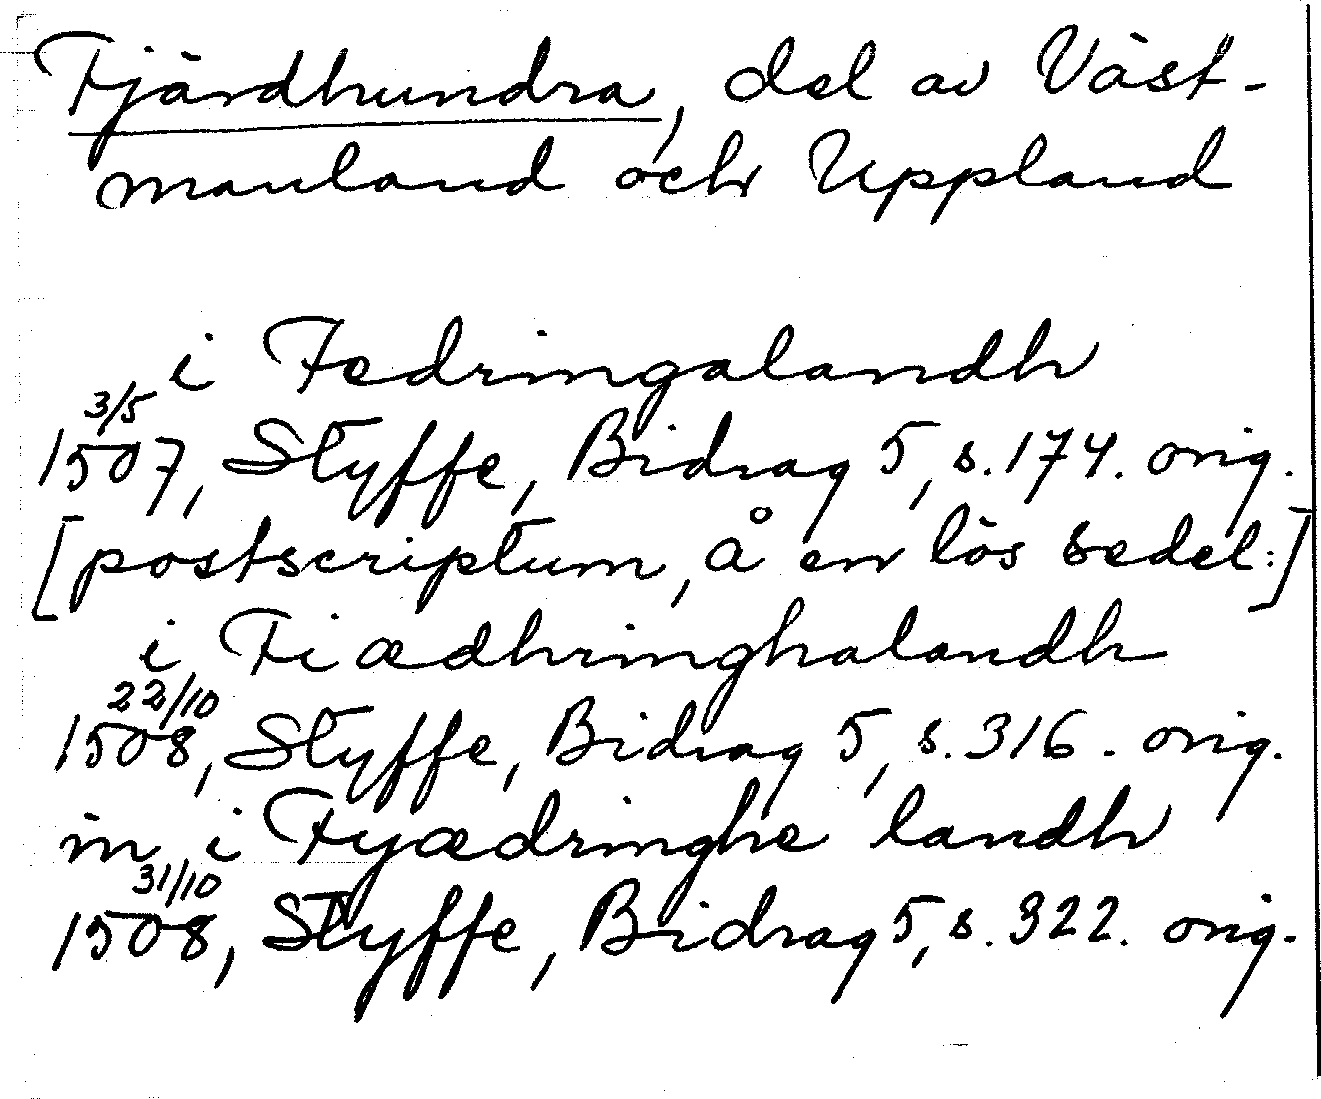 Fjärdhundra, del av Väst-
manland och Uppland
i Fedringalandh
3/5
1507, Styffe, Bidrag 5, s. 174. orig.
[postscriptum, å en lös sedel:]
i Fiædhringhalandh
22/10
1508, Styffe, Bidrag 5, s. 316. orig.
in i Fyædringhe landh
31/10
1508, Styffe, Bidrag 5, s. 322. orig.